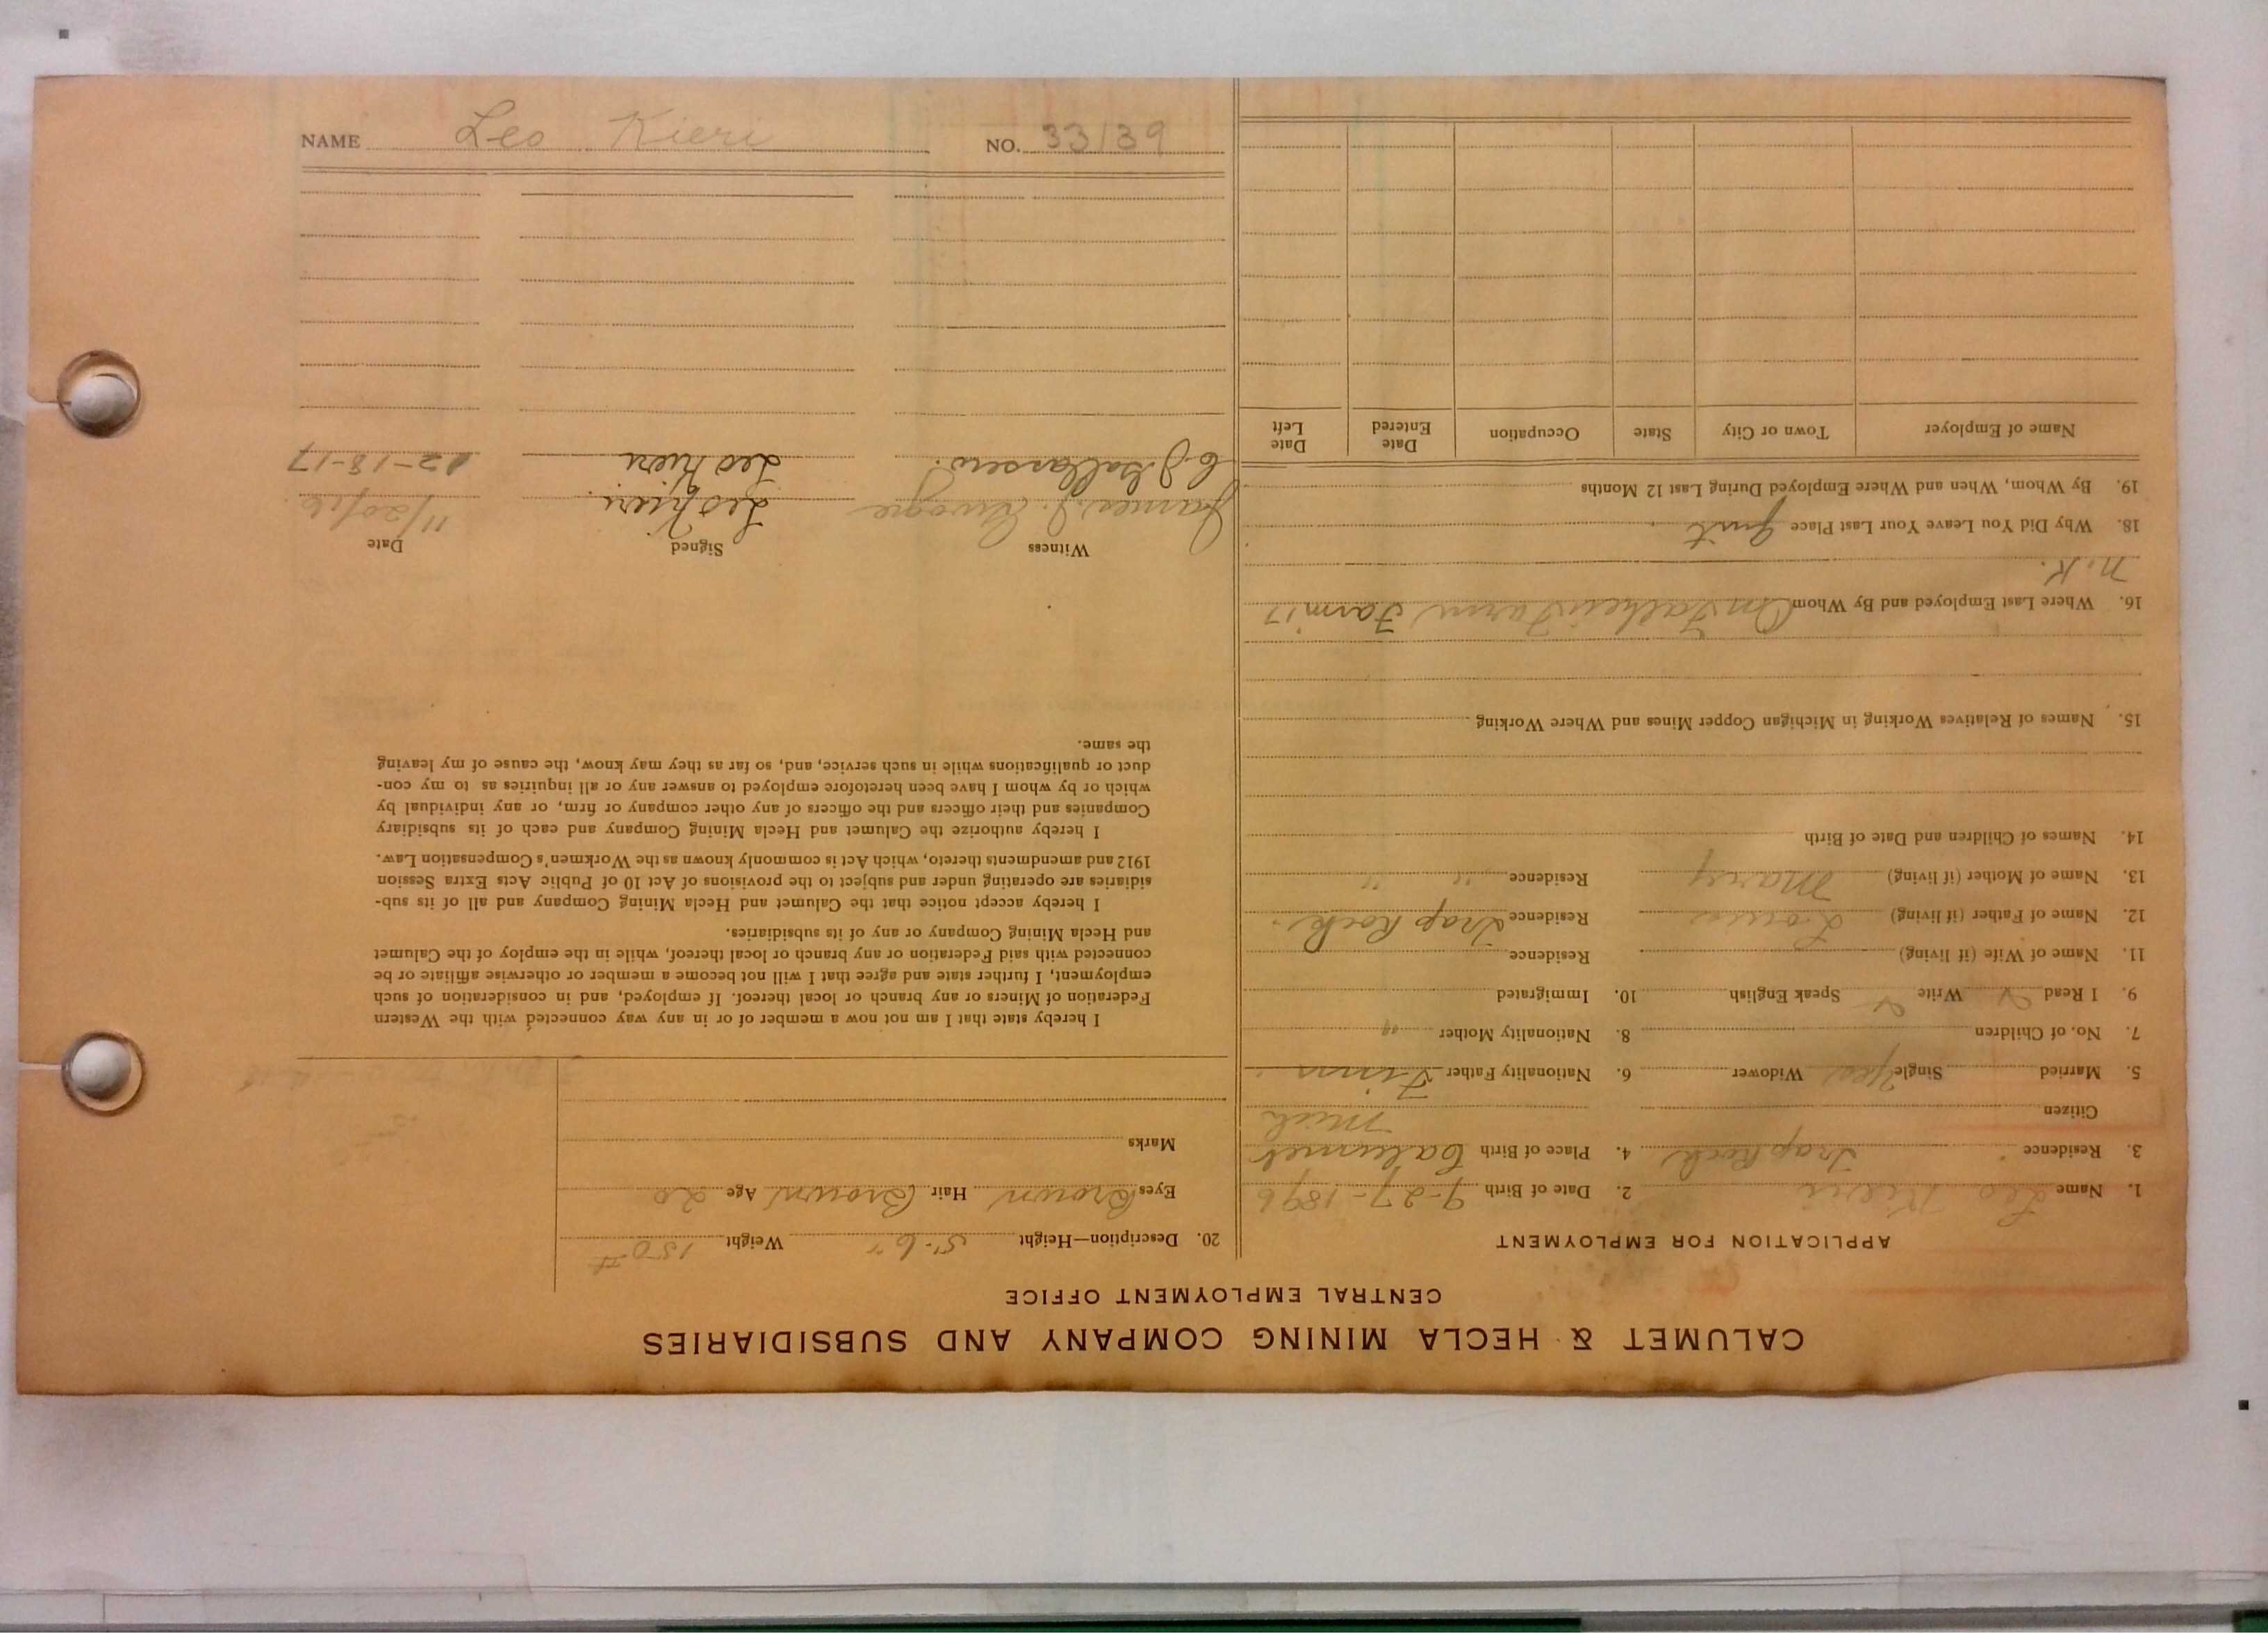 CALUMET & HECLA MINING COMPANY AND SUBSIDIARIES
CENTRAL EMPLOYMENT OFFICE
APPLICATION FOR EMPLOYMENT
1. Name Leo Kieri 2. Date of Birth 9-27-1896
3. Residence Trap Rock 4. Place of Birth Calumet
Citizen Mich
5. Married Single Yes Widower 6. Nationality Father Finn
7. No. of Children 8. Nationality Mother "
9. I Read ✓ Write ✓ Speak English 10. Immigrated
11. Name of Wife (if living) Residence
12. Name of Father (if living) Louis Residence Trap Rock.
13. Name of Mother (if living) Mary Residence " "
14. Names of Children and Date of Birth
15. Names of Relatives Working in Michigan Copper Mines and Where Working
16. Where Last Employed and By Whom On Fathers Farm Farm '17
n.K.
18. Why Did You Leave Your Last Place Quit.
19. By Whom, When and Where Employed During Last 12 Months
Name of Employer Town or City State Occupation Date Entered Date Left
20. Description—Height 5'-6" Weight 150#
Eyes Brown Hair Brown Age 20
Marks
I hereby state that I am not now a member of or in any way connected with the Western
Federation of Miners or any branch or local thereof. If employed, and in consideration of such
employment, I further state and agree that I will not become a member or otherwise affiliate or be
connected with said Federation or any branch or local thereof, while in the employ of the Calumet
and Hecla Mining Company or any of its subsidiaries.
I hereby accept notice that the Calumet and Hecla Mining Company and all of its sub-
sidiaries are operating under and subject to the provisions of Act 10 of Public Acts Extra Session
1912 and amendments thereto, which Act is commonly known as the Workmen's Compensation Law.
I hereby authorize the Calumet and Hecla Mining Company and each of its subsidiary
Companies and their officers and the officers of any other company or firm, or any individual by
which or by whom I have been heretofore employed to answer any or all inquiries as to my con-
duct or qualifications while in such service, and, so far as they may know, the cause of my leaving
the same.
Witness Signed Date
James J. Leo Kieri. 11/20/16
C J Leo Kieri 12-18-17
NAME Leo Kieri NO. 33139